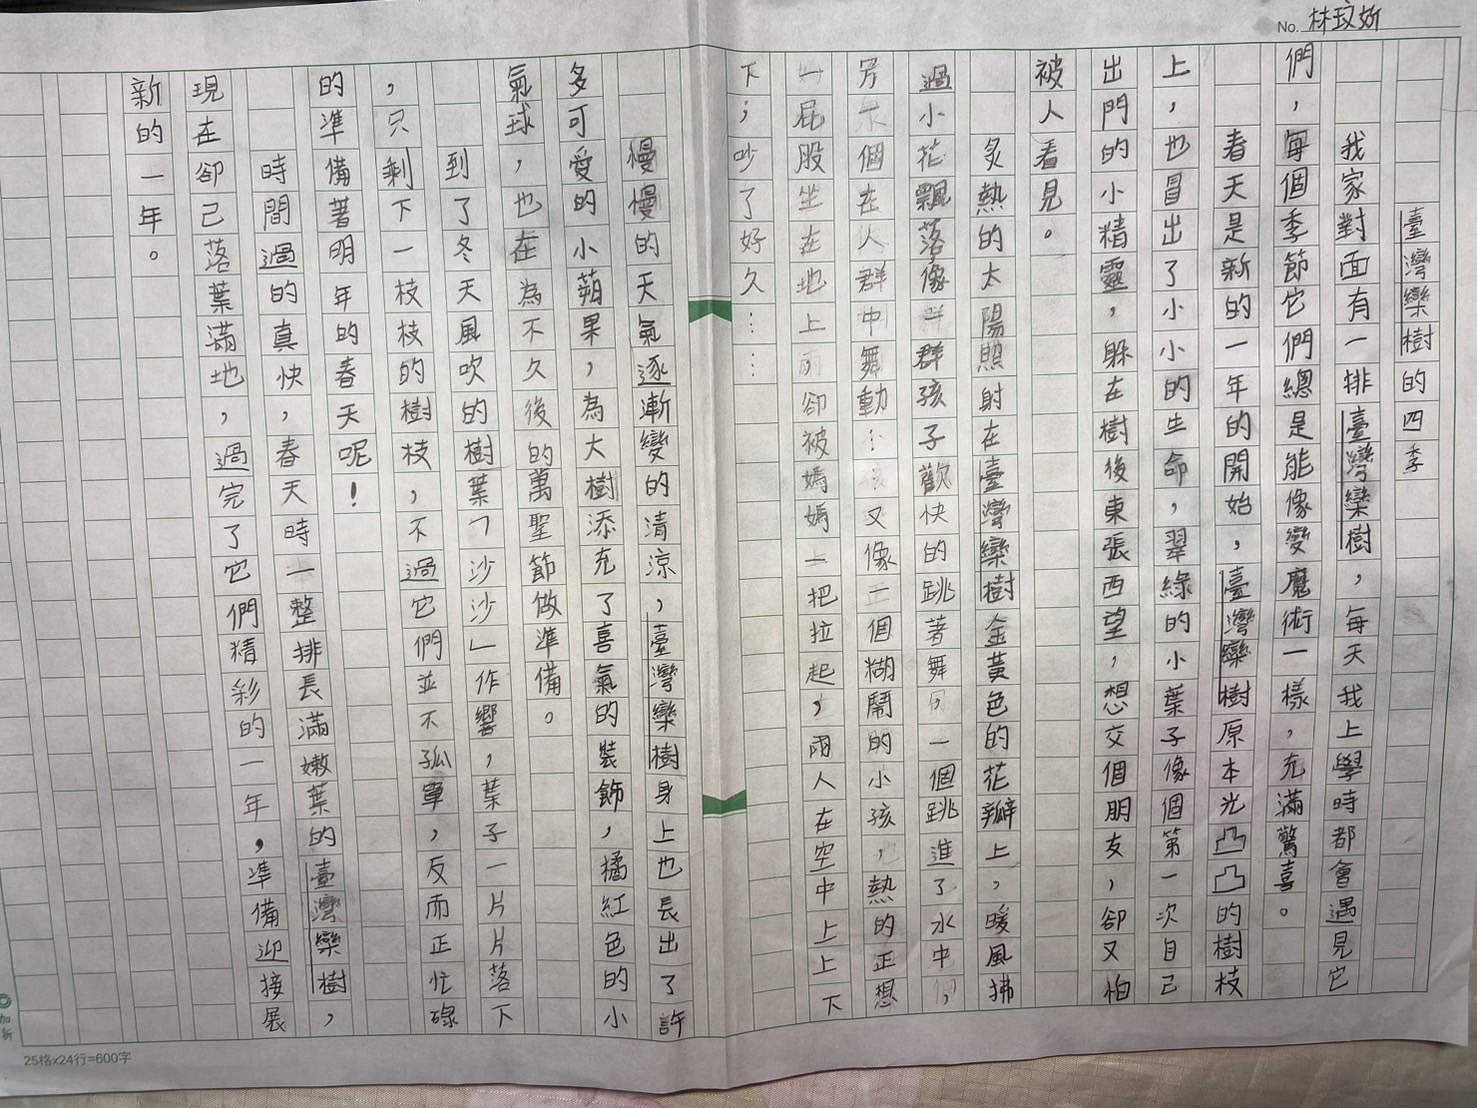 No. 林玟妡
臺灣欒樹的四季
我家對面有一排臺灣欒樹，每天我上學時都會遇見它
們，每個季節它們總是能像變魔術一樣，充滿驚喜。
春天是新的一年的開始，臺灣欒樹原本光凸凸的樹枝
上，也冒出了小小的生命，翠綠的小葉子像個第一次自己
出門的小精靈，躲在樹後東張西望，想交個朋友，卻又怕
被人看見。
炙熱的太陽照射在臺灣欒樹金黃色的花瓣上，暖風拂
過小花飄落像群孩子歡快的跳著舞，一個跳進了水中，
另個在人群中舞動…又像一個糊鬧的小孩，熱的正想
一屁股坐在地上卻被媽媽一把拉起，兩人在空中上上下
下；吵了好久……
慢慢的天氣逐漸變的清涼，臺灣欒樹身上也長出了許
多可愛的小蘋果，為大樹添充了喜氣的裝飾，橘紅色的小
氣球，也在為不久後的萬聖節做準備。
到了冬天風吹的樹葉「沙沙」作響，葉子一片片落下
，只剩下一枝枝的樹枝，不過它們並不孤單，反而正忙碌
的準備著明年的春天呢！
時間過的真快，春天時一整排長滿嫩葉的臺灣欒樹，
現在卻己落葉滿地，過完了它們精彩的一年，準備迎接展
新的一年。
25格x24行=600字